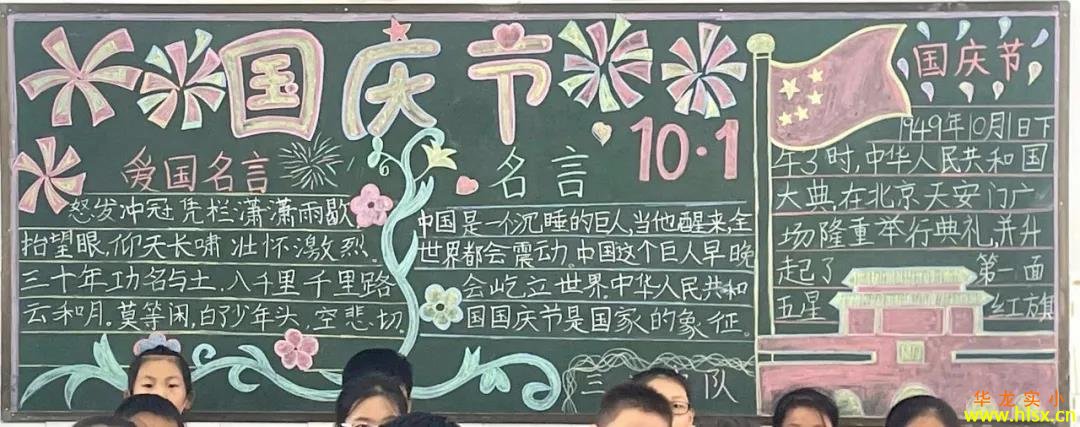 国庆节
10·1
爱国名言
怒发冲冠凭栏潇潇雨歇
抬望眼,仰天长啸 壮怀激烈.
三十年功名与土,八千里千里路
云和月.莫等闲,白了少年头,空悲切.
名言
中国是一个沉睡的巨人,当他醒来,全
世界都会震动.中国这个巨人早晚
会屹立世界.中华人民共和
国国庆节是国家的象征.
三 队
国庆节
1949年10月1日下
午3时,中华人民共和国
大典,在北京天安门广
场隆重举行典礼,并升
起了 第一面
五星 红旗
华龙实小
www.hlsx.cn